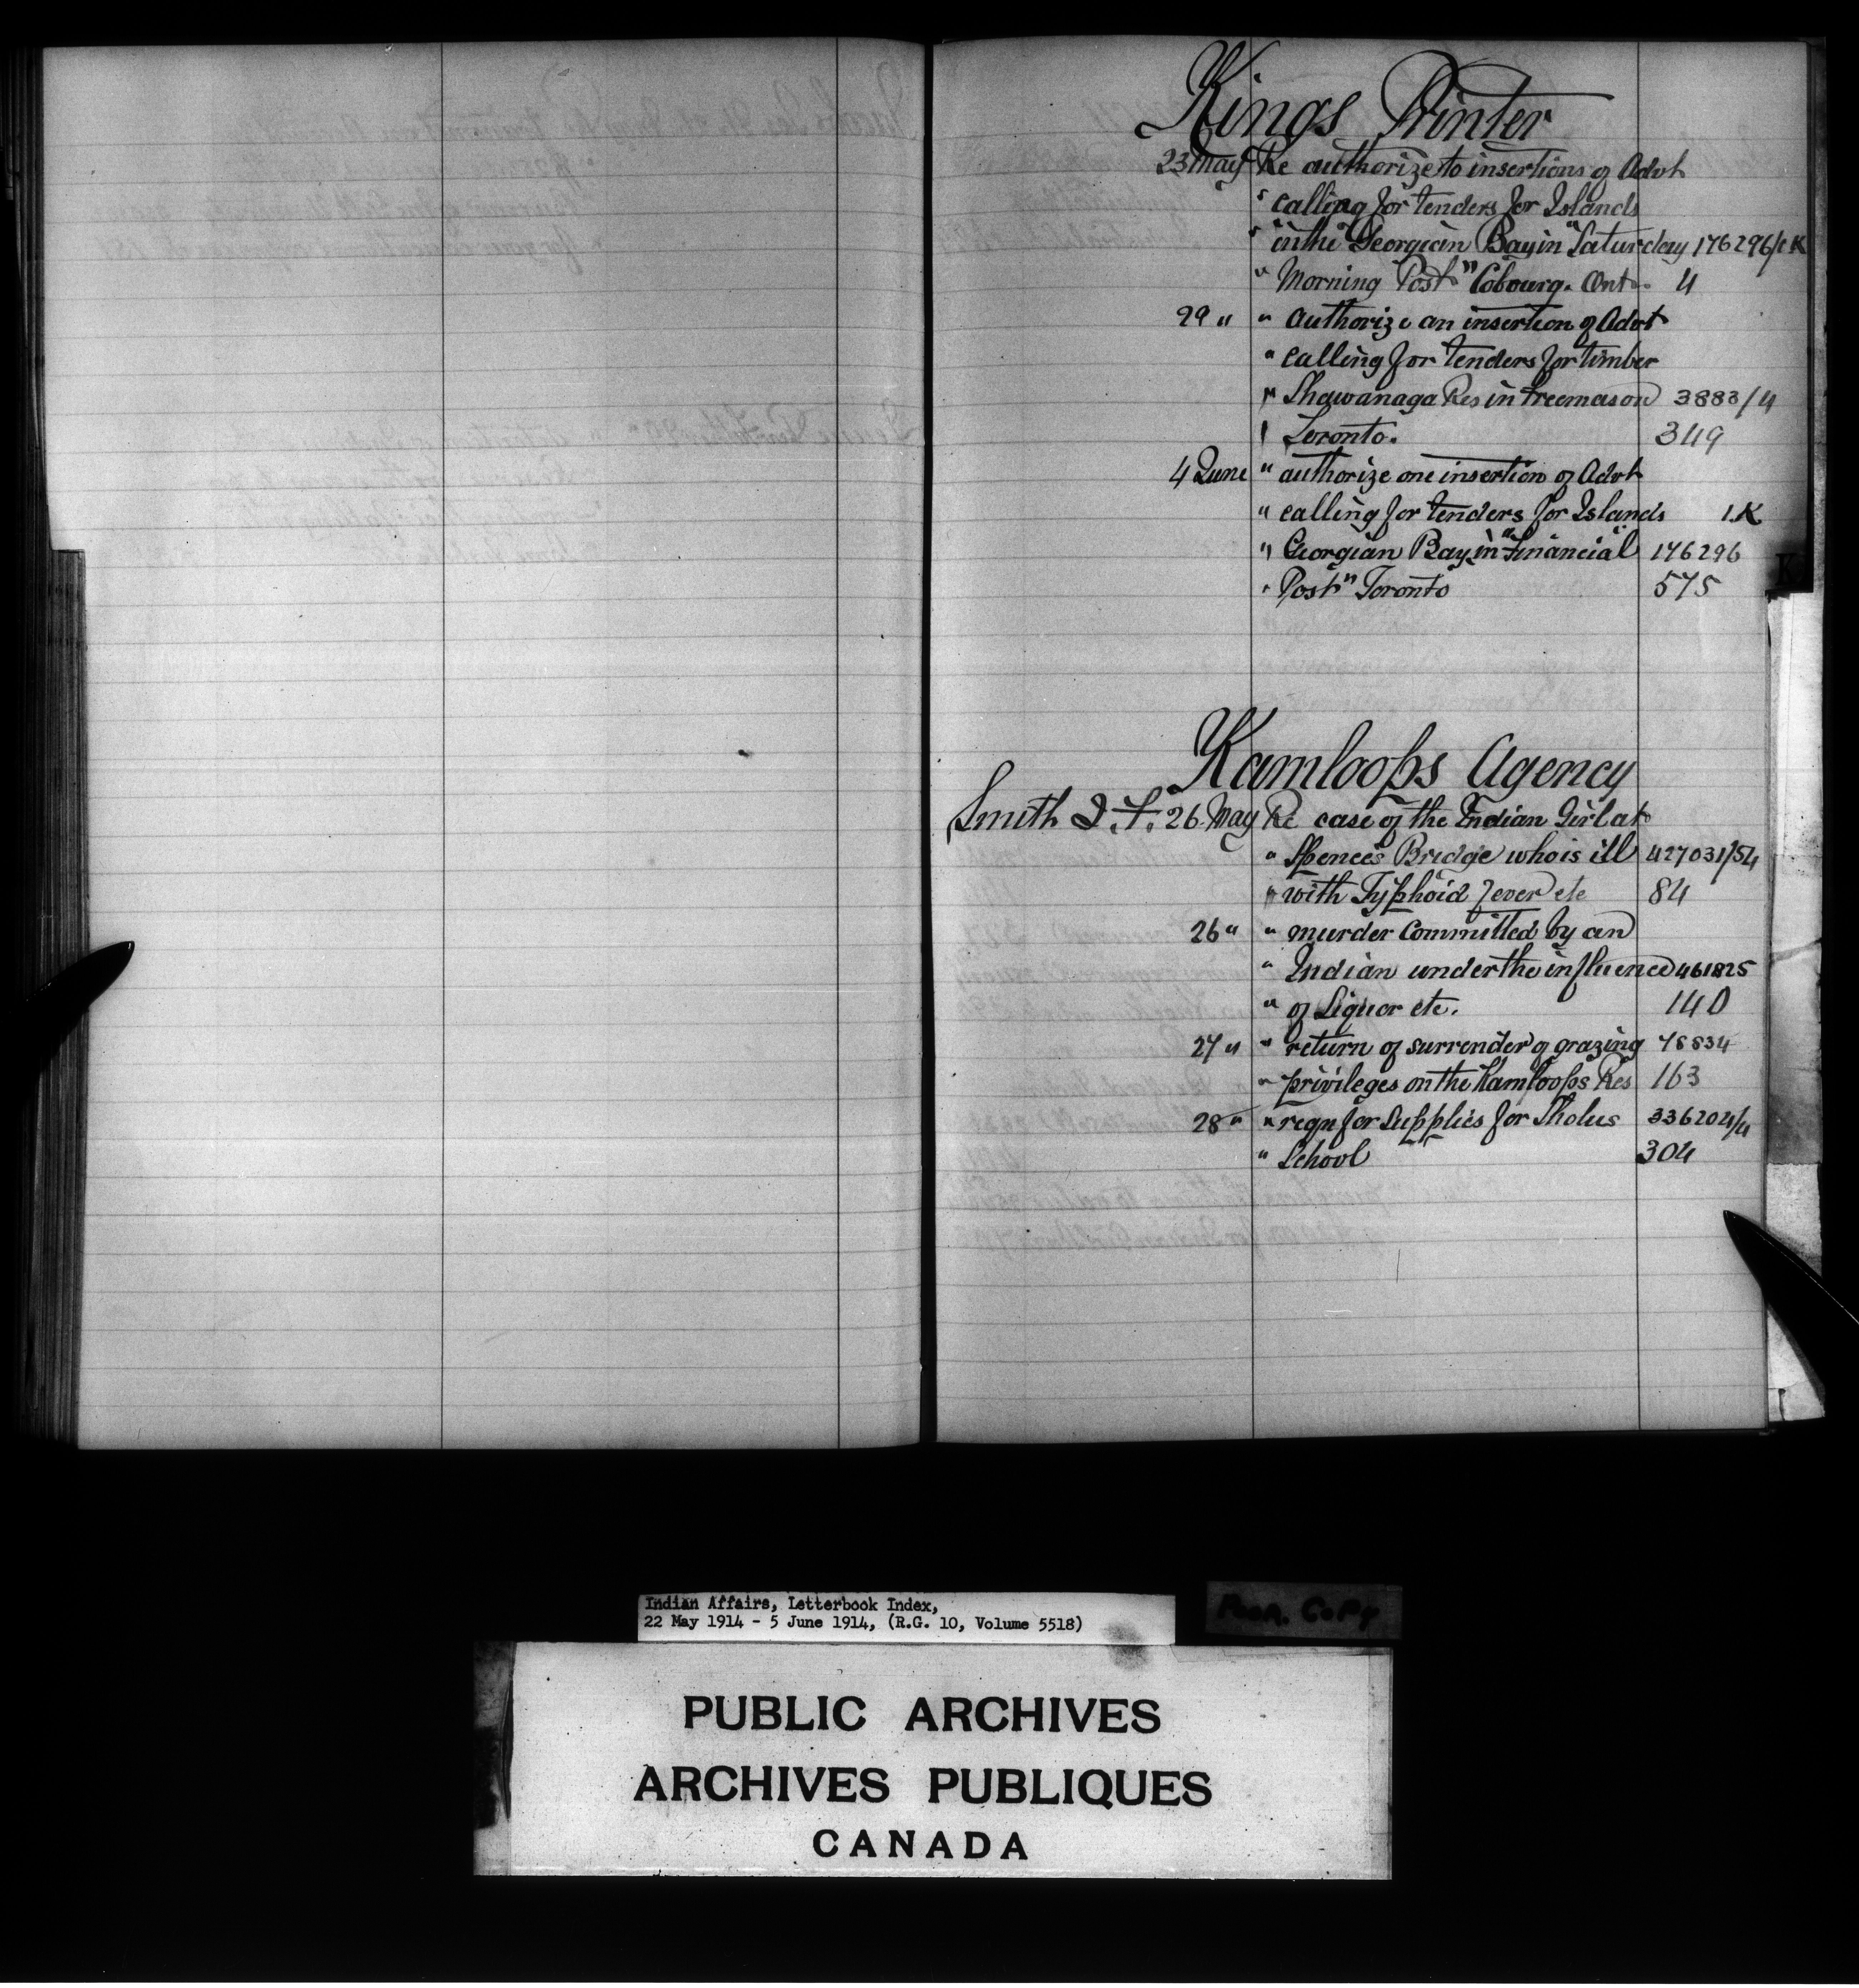 Kings Printer
23 May Re authorize to insertions of Advt
" calling for tenders for Islands
" in the "Georgian Bay in "Saturday 176296/1K
" Morning Post" Cobourg. Ont. 4
29 " " authorize an insertion of Advt
" calling for tenders for timber
" Shawanaga Res in Freemason 3883/4
" Toronto. 349
4 June " authorize one insertion of Advt
" calling for tenders for Islands 1.K
" Georgian Bay in "Financial 176296
" Post" Toronto 575
K
Kamloops Agency
Smith J. F. 26 May Re case of the Indian Girl at
" Spences Bridge who is ill 427031/54
" with Typhoid fever etc 84
26 " " murder committed by an
" Indian under the influence 461825
" of Liquor etc. 140
27 " " return of surrender of grazing 78834
" privileges on the Kamloops Res 163
28 " " reqn for supplies for Sholus 336204/4
" School 304
Indian Affairs, Letterbook Index,
22 May 1914 - 5 June 1914, (R.G. 10, Volume 5518)
POOR COPY
PUBLIC ARCHIVES
ARCHIVES PUBLIQUES
CANADA